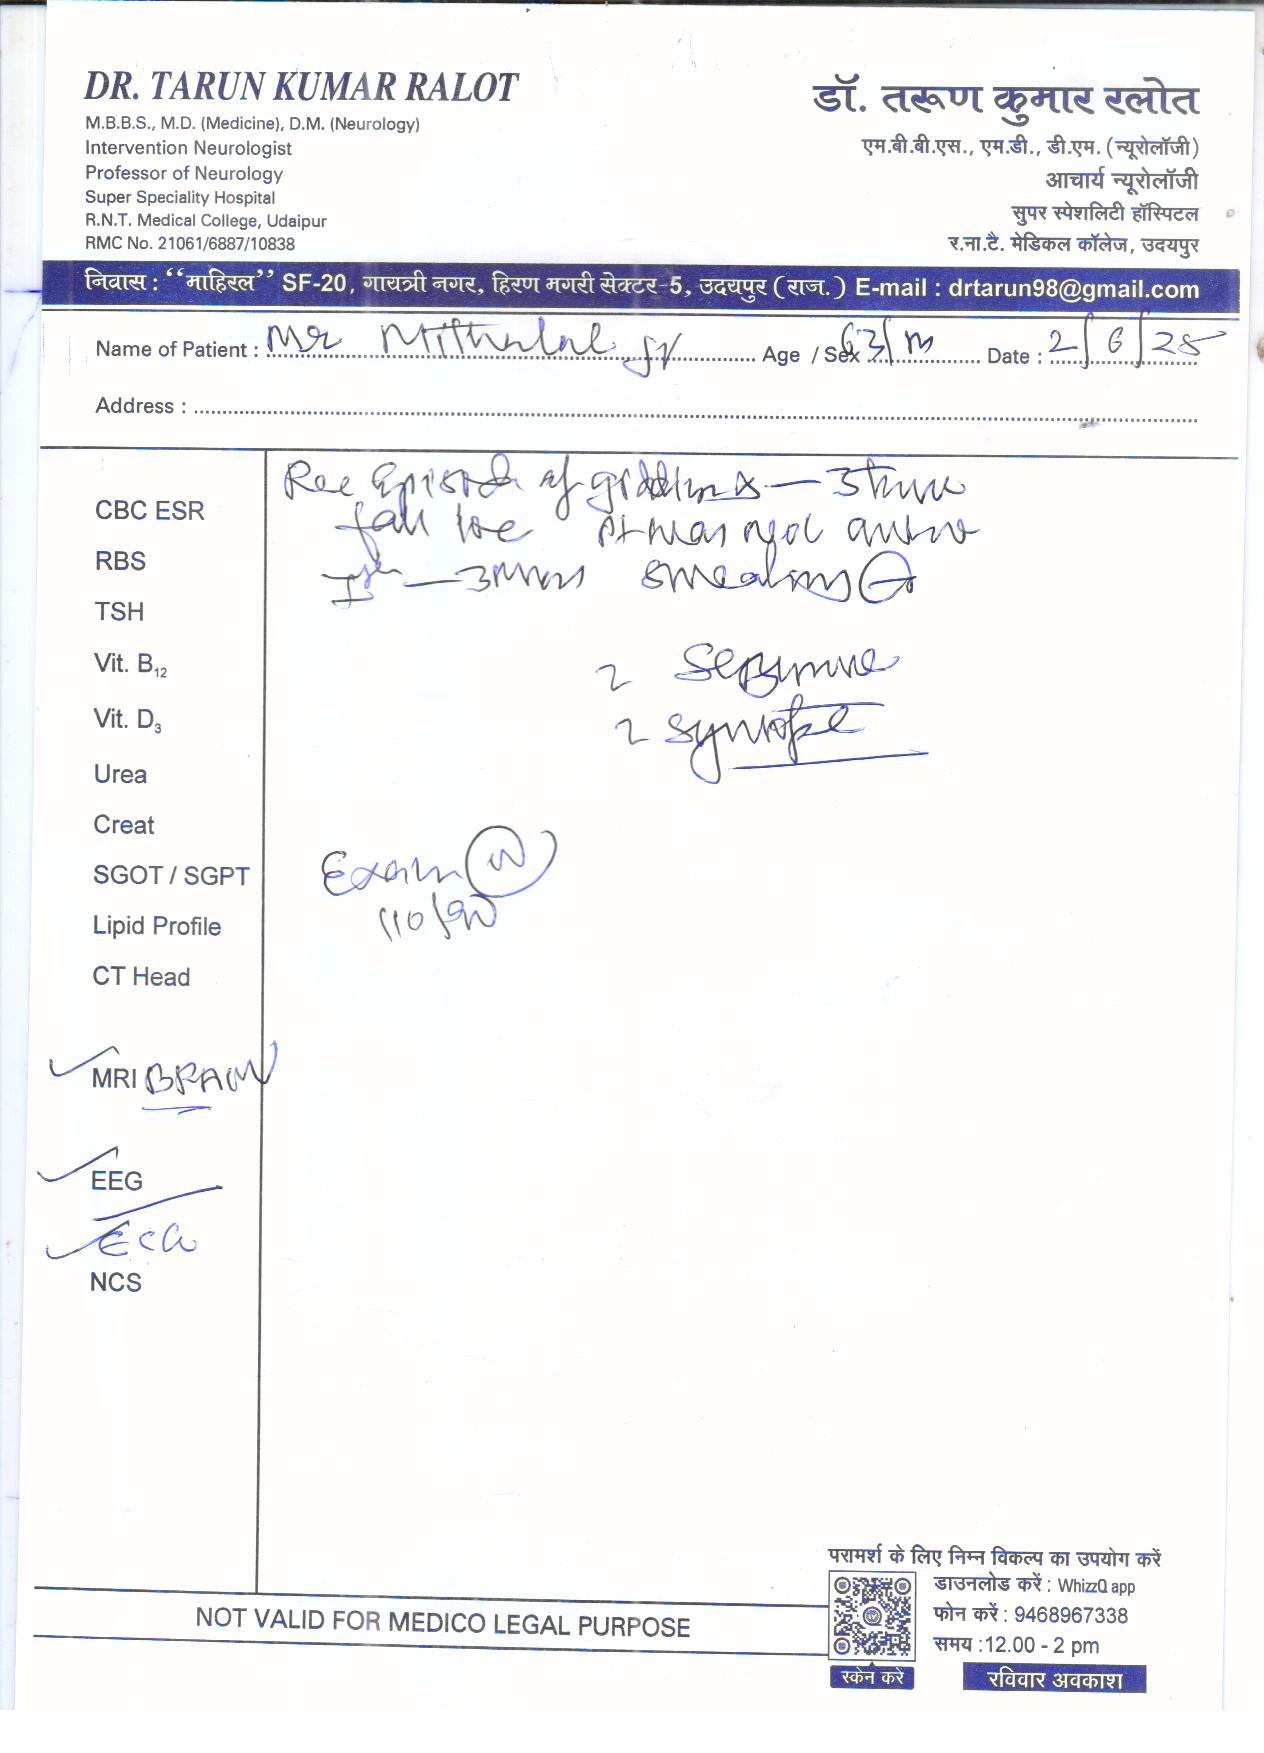 DR. TARUN KUMAR RALOT
M.B.B.S., M.D. (Medicine), D.M. (Neurology)
Intervention Neurologist
Professor of Neurology
Super Speciality Hospital
R.N.T. Medical College, Udaipur
RMC No. 21061/6887/10838
डॉ. तरूण कुमार रलोत
एम.बी.बी.एस., एम.डी., डी.एम. (न्यूरोलॉजी)
आचार्य न्यूरोलॉजी
सुपर स्पेशलिटी हॉस्पिटल
र.ना.टै. मेडिकल कॉलेज, उदयपुर
निवास : “माहिरल” SF-20, गायत्री नगर, हिरण मगरी सेक्टर-5, उदयपुर (राज.) E-mail : drtarun98@gmail.com
Name of Patient : Mr Mithalal Age / Sex 63/M Date : 2/6/25
Address :
CBC ESR
RBS
TSH
Vit. B12
Vit. D3
Urea
Creat
SGOT / SGPT
Lipid Profile
CT Head
MRI BRAIN
EEG
ECG
NCS
Rec Episode of
fall
? Syncope
Exam N
110/90
NOT VALID FOR MEDICO LEGAL PURPOSE
परामर्श के लिए निम्न विकल्प का उपयोग करें
डाउनलोड करें : WhizzQ app
फोन करें : 9468967338
समय :12.00 - 2 pm
स्केन करे
रविवार अवकाश